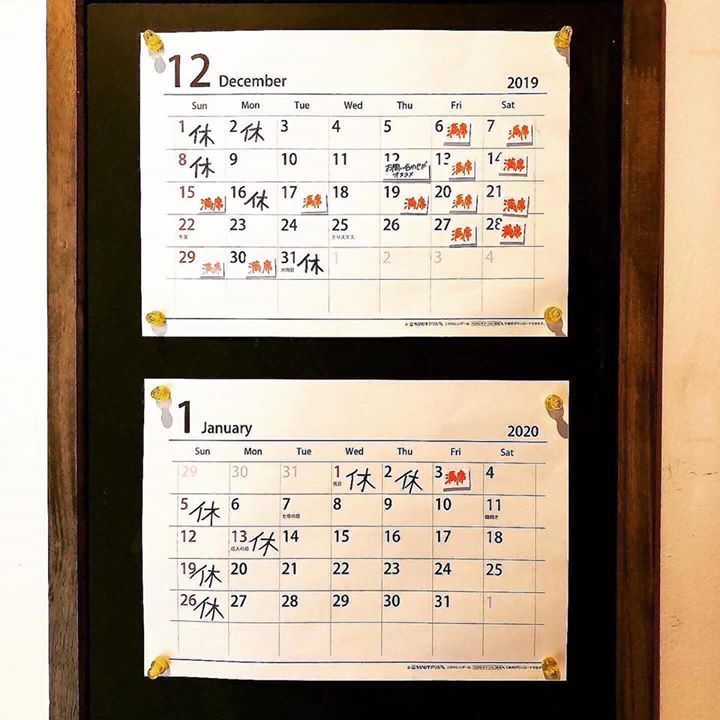 12 December 2019
Sun Mon Tue Wed Thu Fri Sat
1 休 2 休 3 4 5 6 満席 7 満席
8 休 9 10 11 12 お問い合わせが 13 満席 14 満席
オススメ
15 満席 16 休 17 満席 18 19 満席 20 満席 21 満席
22 23 24 25 26 27 満席 28 満席
冬至 クリスマス
29 満席 30 満席 31 休 1 2 3 4
大晦日
1 January 2020
Sun Mon Tue Wed Thu Fri Sat
29 30 31 1 休 2 休 3 満席 4
元日
5 休 6 7 8 9 10 11
七草の日 鏡開き
12 13 休 14 15 16 17 18
成人の日
19 休 20 21 22 23 24 25
26 休 27 28 29 30 31 1